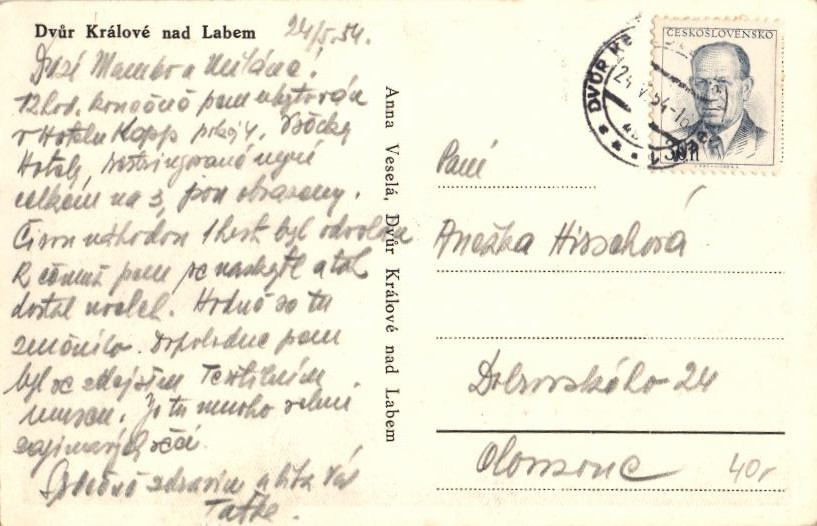 Dvůr Králové nad Labem
24/5. 54.
Drazí Mambo a Miláne!
12 hod. konečně jsem ubytován
v Hotelu Kopp pokoj 4. Všecky
Hotely, restringované nyní
celkem na 3, jsou obsazeny.
Čirou náhodou 1 host byl odvolán
k čemuž jsem se naskytl a tak
dostal nocleh. Hodně se tu
změnilo. Dopoledne jsem
byl ve zdejším Textilním
museu. Je tu mnoho velmi
zajímavých věcí.
Srdečně zdravím a líbá Vás
Taťka.
Anna Veselá, Dvůr Králové nad Labem
DVŮR KR
24.V.54-16
4b
ČESKOSLOVENSKO
30h
Paní
Anežka Hirschová
Dobrovského 24
Olomouc
40r